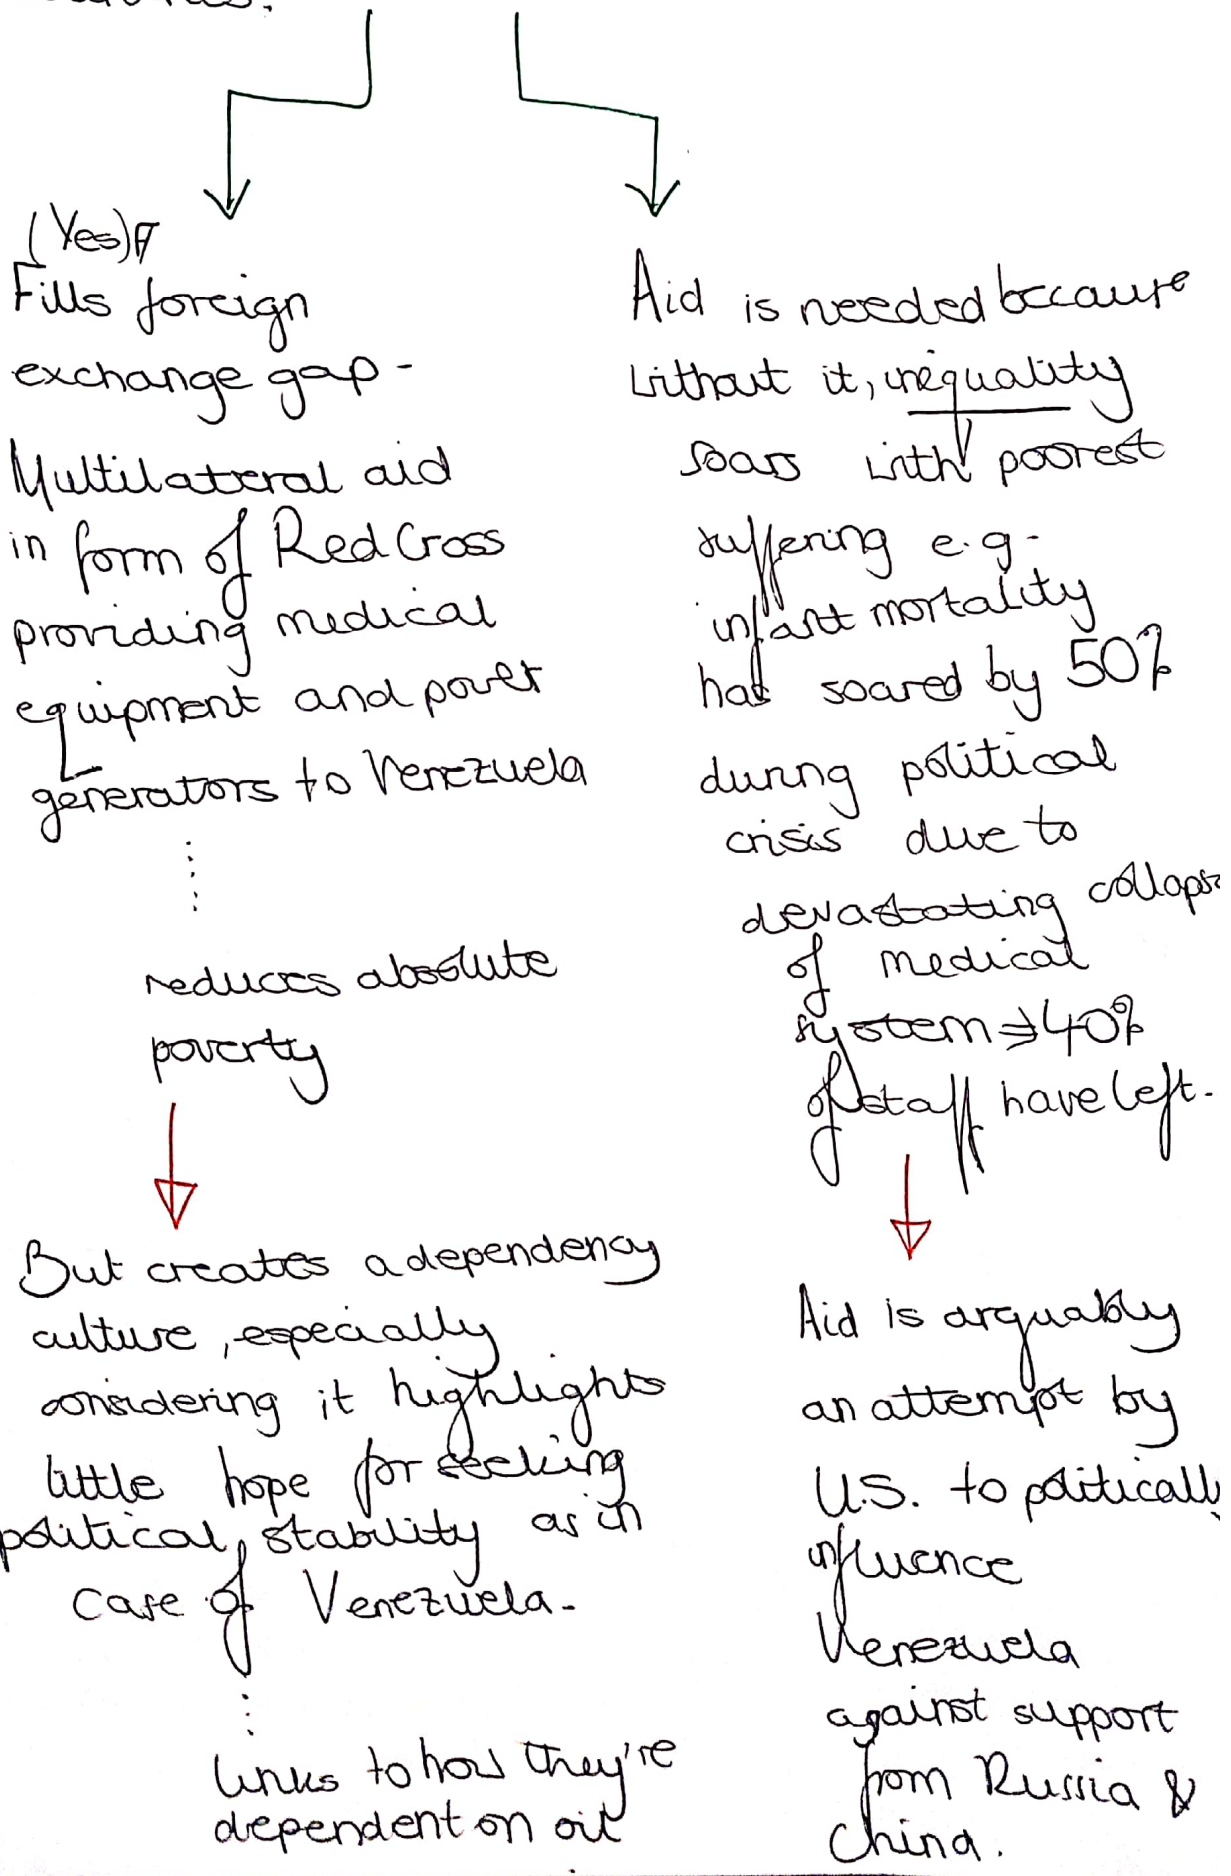 (Yes)
Fills foreign
exchange gap -
Multilateral aid
in form of Red Cross
providing medical
equipment and power
generators to Venezuela
reduces absolute
poverty
But creates a dependency
culture, especially
considering it highlights
little hope for seeking
political stability as in
case of Venezuela.
links to how they're
dependent on oil
Aid is needed because
without it, inequality
soars with poorest
suffering e.g.
infant mortality
has soared by 50%
during political
crisis due to
devastating collapse
of medical
system ⇒ 40%
of staff have left.
Aid is arguably
an attempt by
U.S. to politically
influence
Venezuela
against support
from Russia &
China.